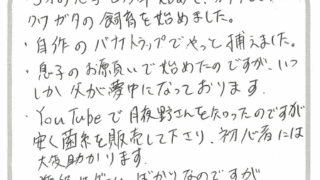 クワガタの飼育を始めました。
・自作のバナナトラップでやっと捕えました。
・息子のお願いで始めたのですが、いつ
しか父が夢中になっております。
・YouTubeで月夜野さんを知ったのですが
安く菌糸を販売して下さり、初心者には
大変助かります。
ばかりなのですが